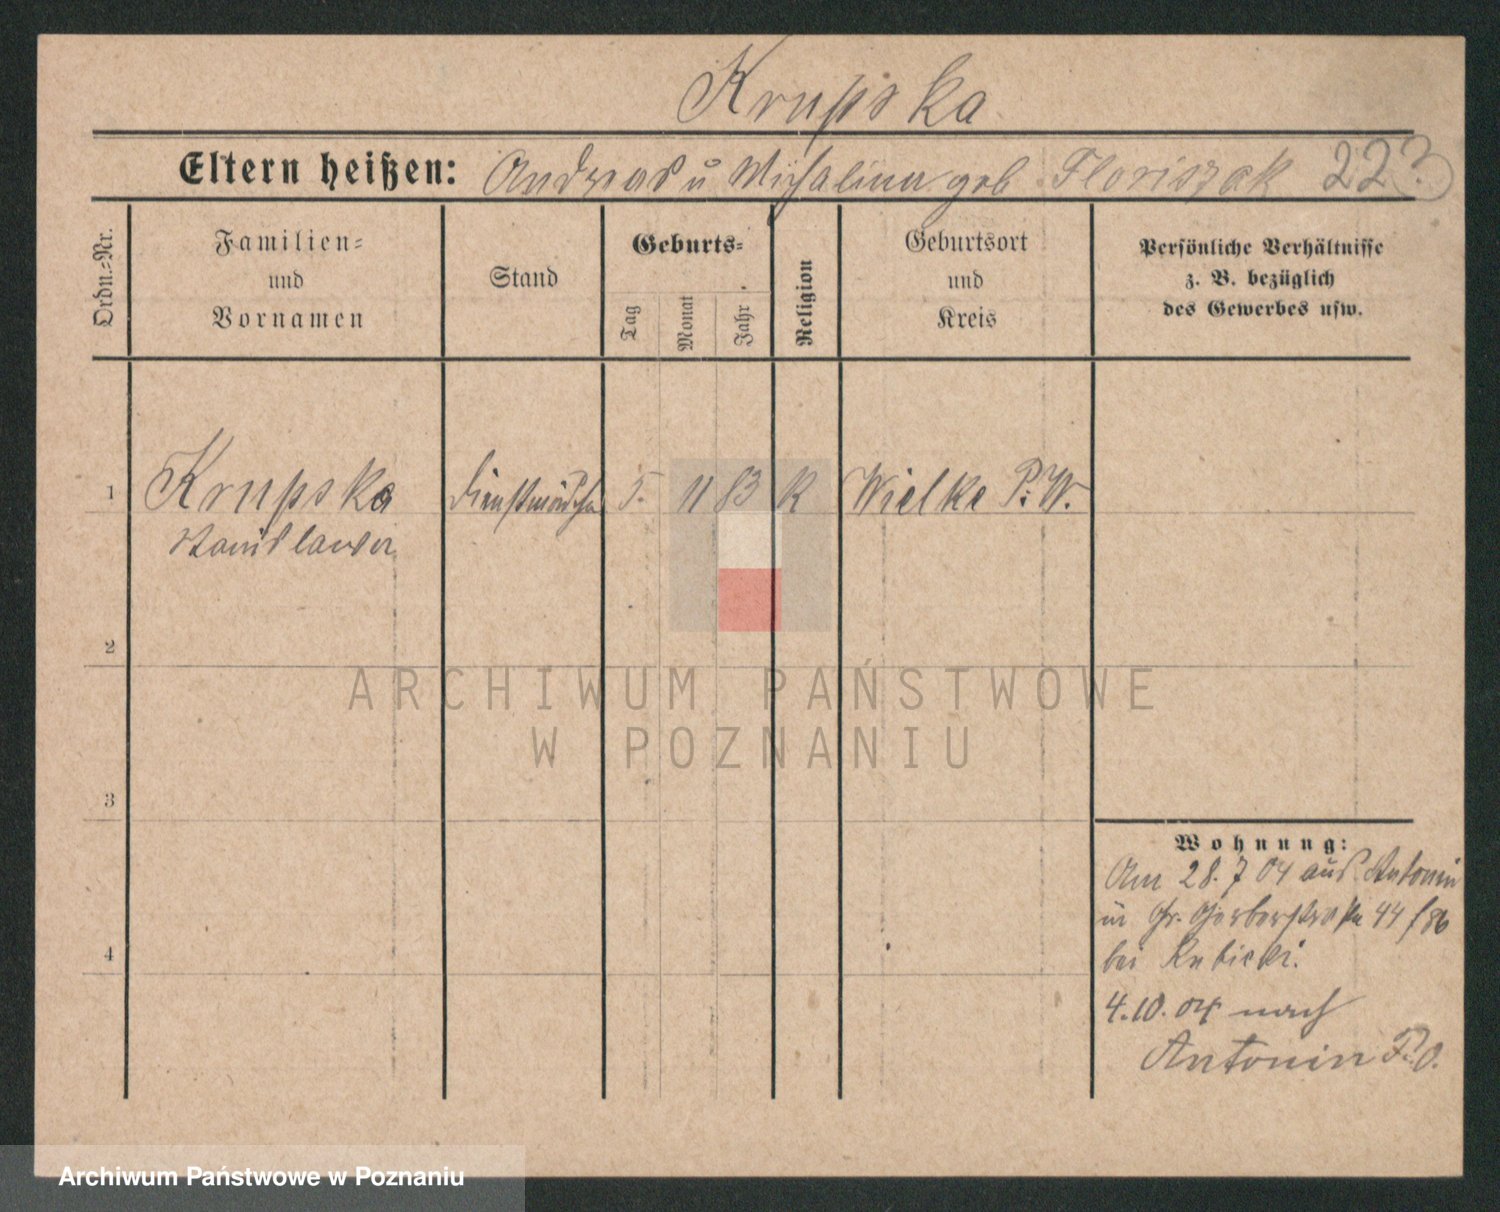 Krupska
Eltern heißen: Andreas u Michalina geb Floriszak 223
Ordn.=Nr.
Familien=
und
Vornamen
Stand
Geburts=
Tag
Monat
Jahr
Religion
Geburtsort
und
Kreis
Persönliche Verhältnisse
z. B. bezüglich
des Gewerbes usw.
1 Krupska Dienstmädchen 5. 11 83 K Wielke P. W.
Stanislawa
2
3
4
Wohnung:
Am 28. 7 04 aus Antonin
in Gr. Gerberstraße 44
bei Rubicki.
4.10.04 nach
Antonin P. O.
ARCHIWUM PAŃSTWOWE
W POZNANIU
Archiwum Państwowe w Poznaniu